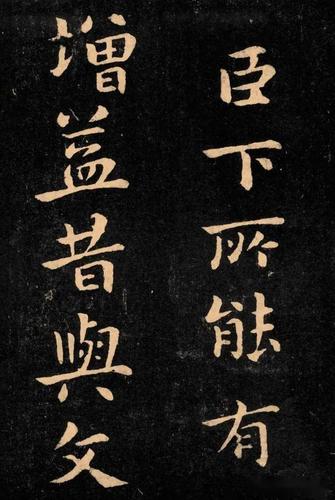 臣下所能有
增益昔與文